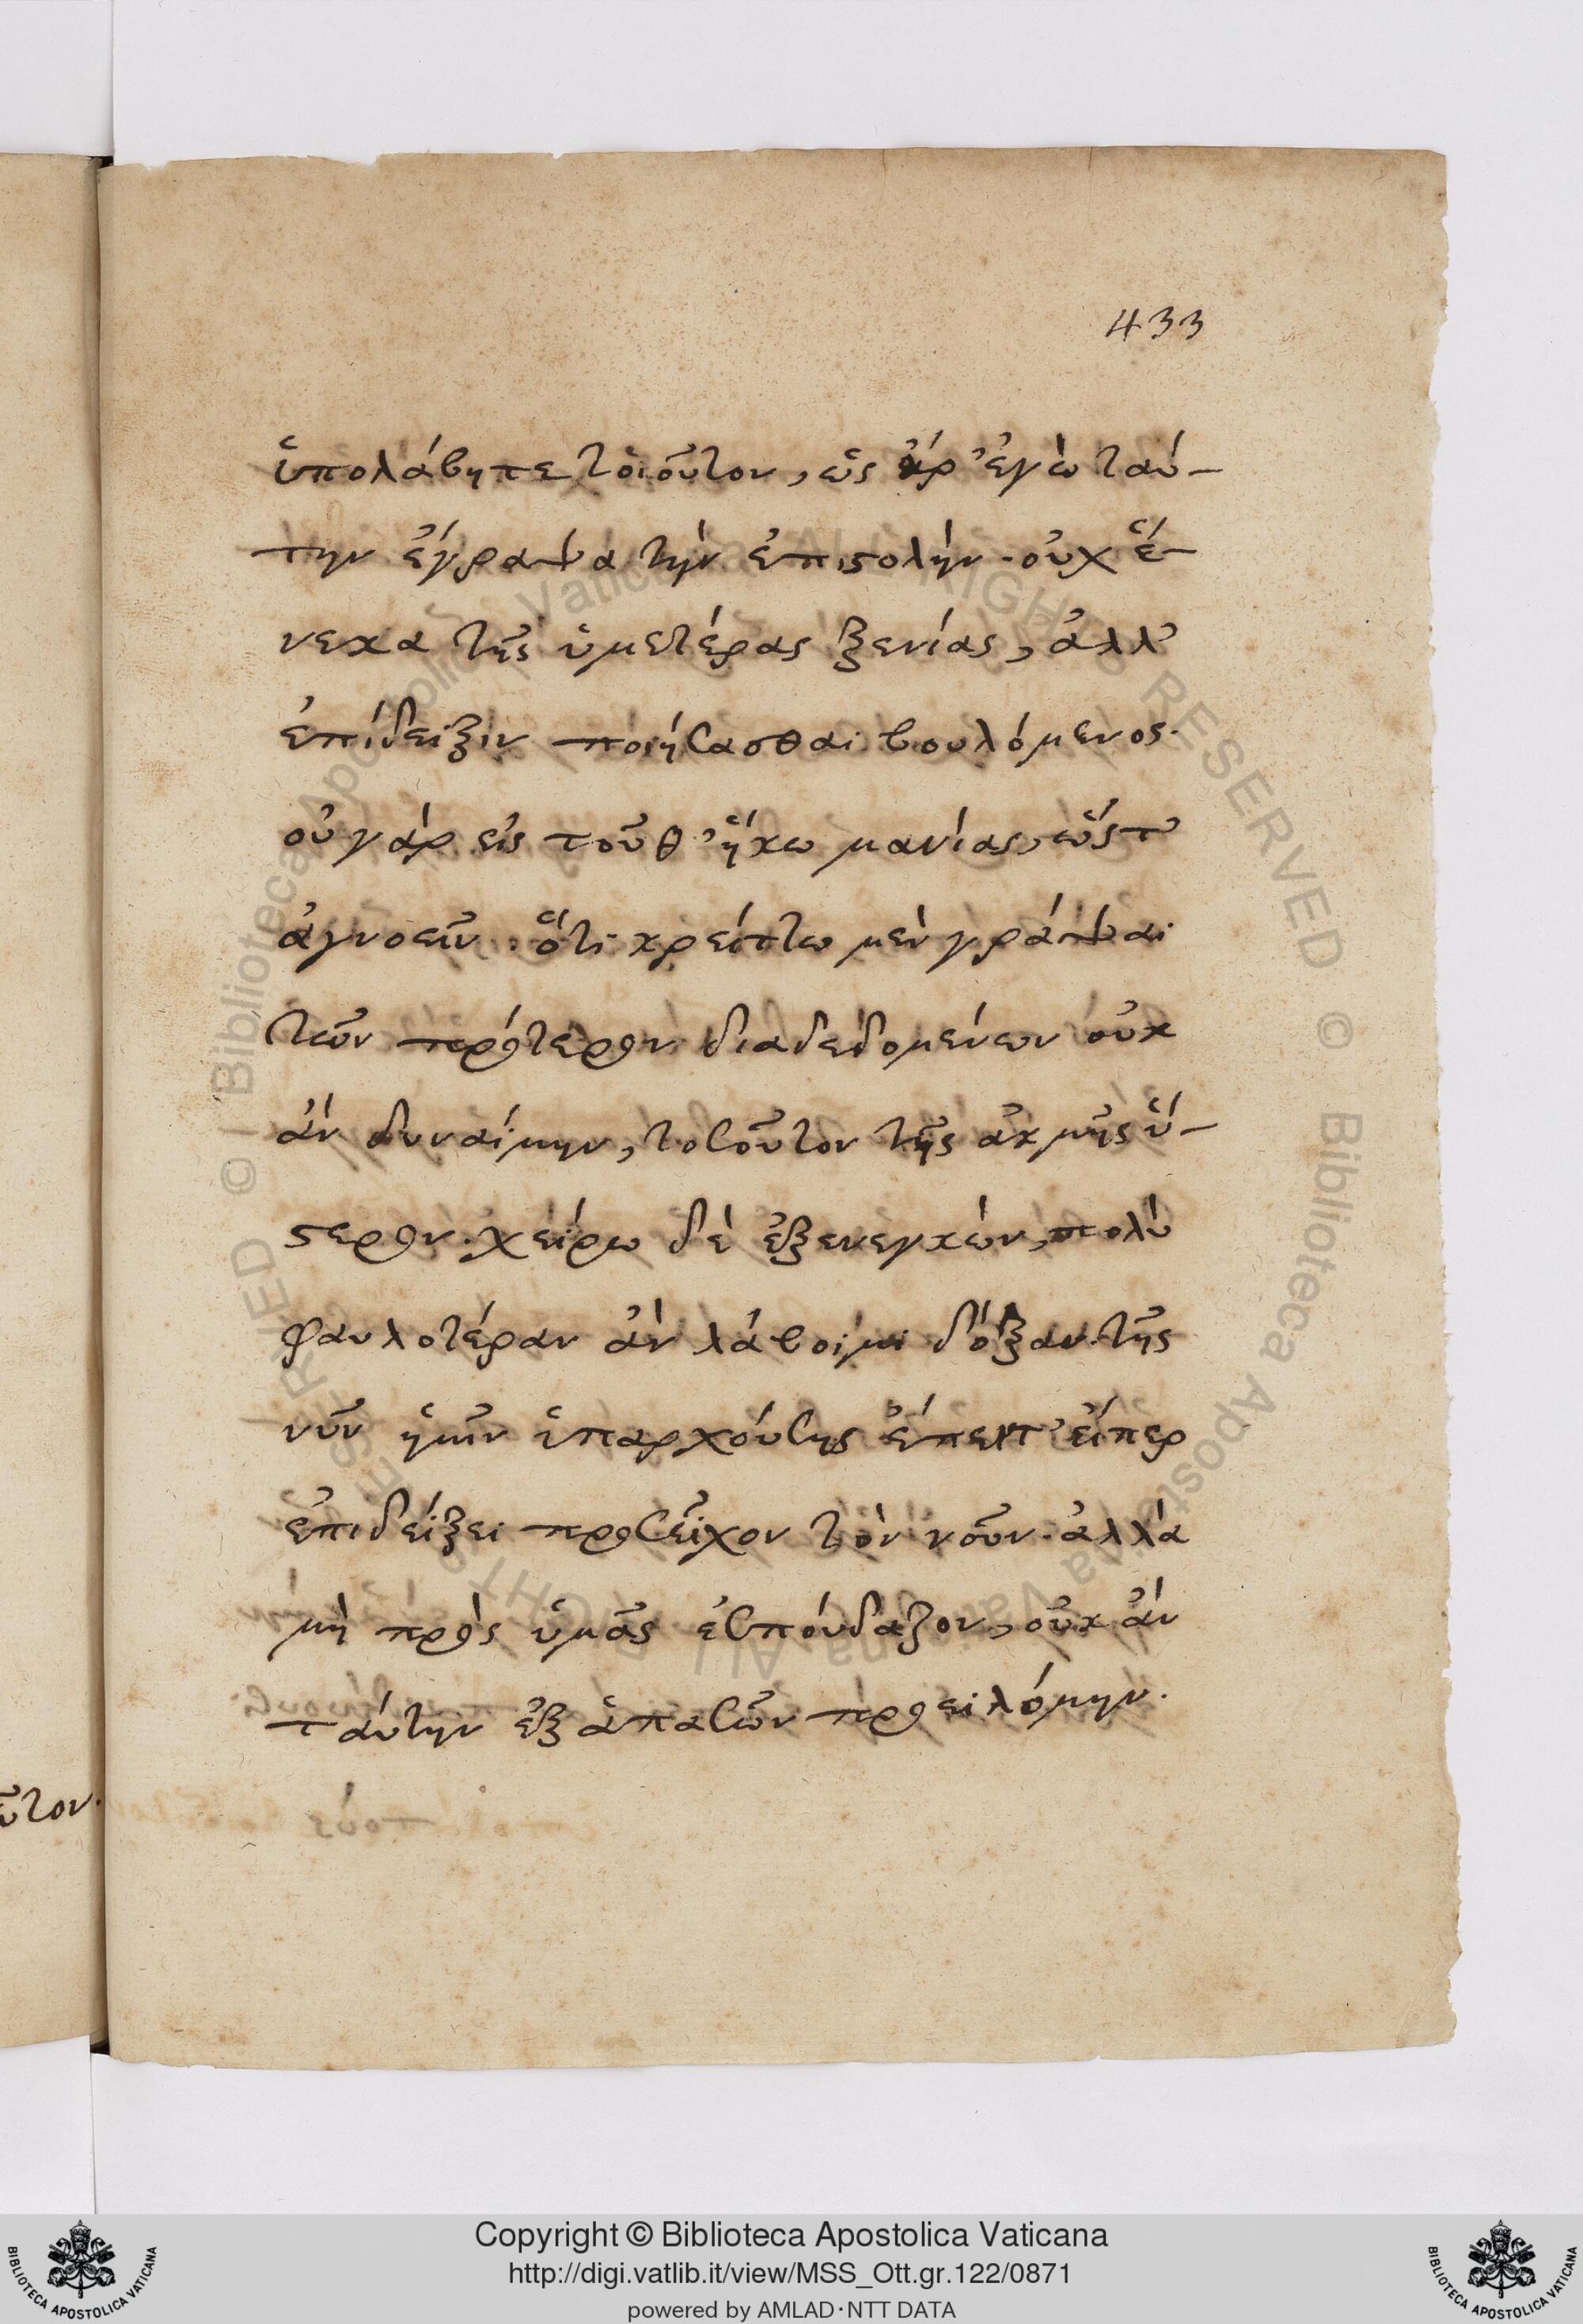 433
ὑπολάβητε τοιοῦτον, ὡς ἄρ' ἐγὼ ταύ-
την ἔγραψα τὴν ἐπιστολὴν. οὐχ ἕ-
νεκα τῆς ὑμετέρας ξενίας, ἀλλ'
ἐπίδειξιν ποιήσασθαι βουλόμενος.
οὐ γὰρ εἰς τοῦθ' ἥκω μανίας, ὥστ'
ἀγνοεῖν. ὅτι κρείττω μὲν γράψαι
τῶν πρότερον διαδεδομένων οὐκ
ἂν δυναίμην, τοσοῦτον τῆς ἀκμῆς ὕ-
στερον. χείρω δὲ ἐξενεγκὼν, πολὺ
φαυλοτέραν ἂν λάβοιμι δόξαν. τῆς
νῦν ἡμῖν ὑπαρχούσης ἔπειτ' εἴπερ
ἐπιδείξει προσεῖχον τὸν νοῦν. ἀλλὰ
μὴ πρὸς ὑμᾶς ἐσπούδαζον, οὐκ ἂν
ταύτην ἐξ ἁπασῶν προειλόμην.
ῦτον.
© Biblioteca Apostolica Vaticana ALL RIGHTS RESERVED © Biblioteca Apostolica Vaticana ALL RIGHTS RESERVED
Copyright © Biblioteca Apostolica Vaticana
http://digi.vatlib.it/view/MSS_Ott.gr.122/0871
powered by AMLAD·NTT DATA
BIBLIOTECA APOSTOLICA VATICANA
BIBLIOTECA APOSTOLICA VATICANA